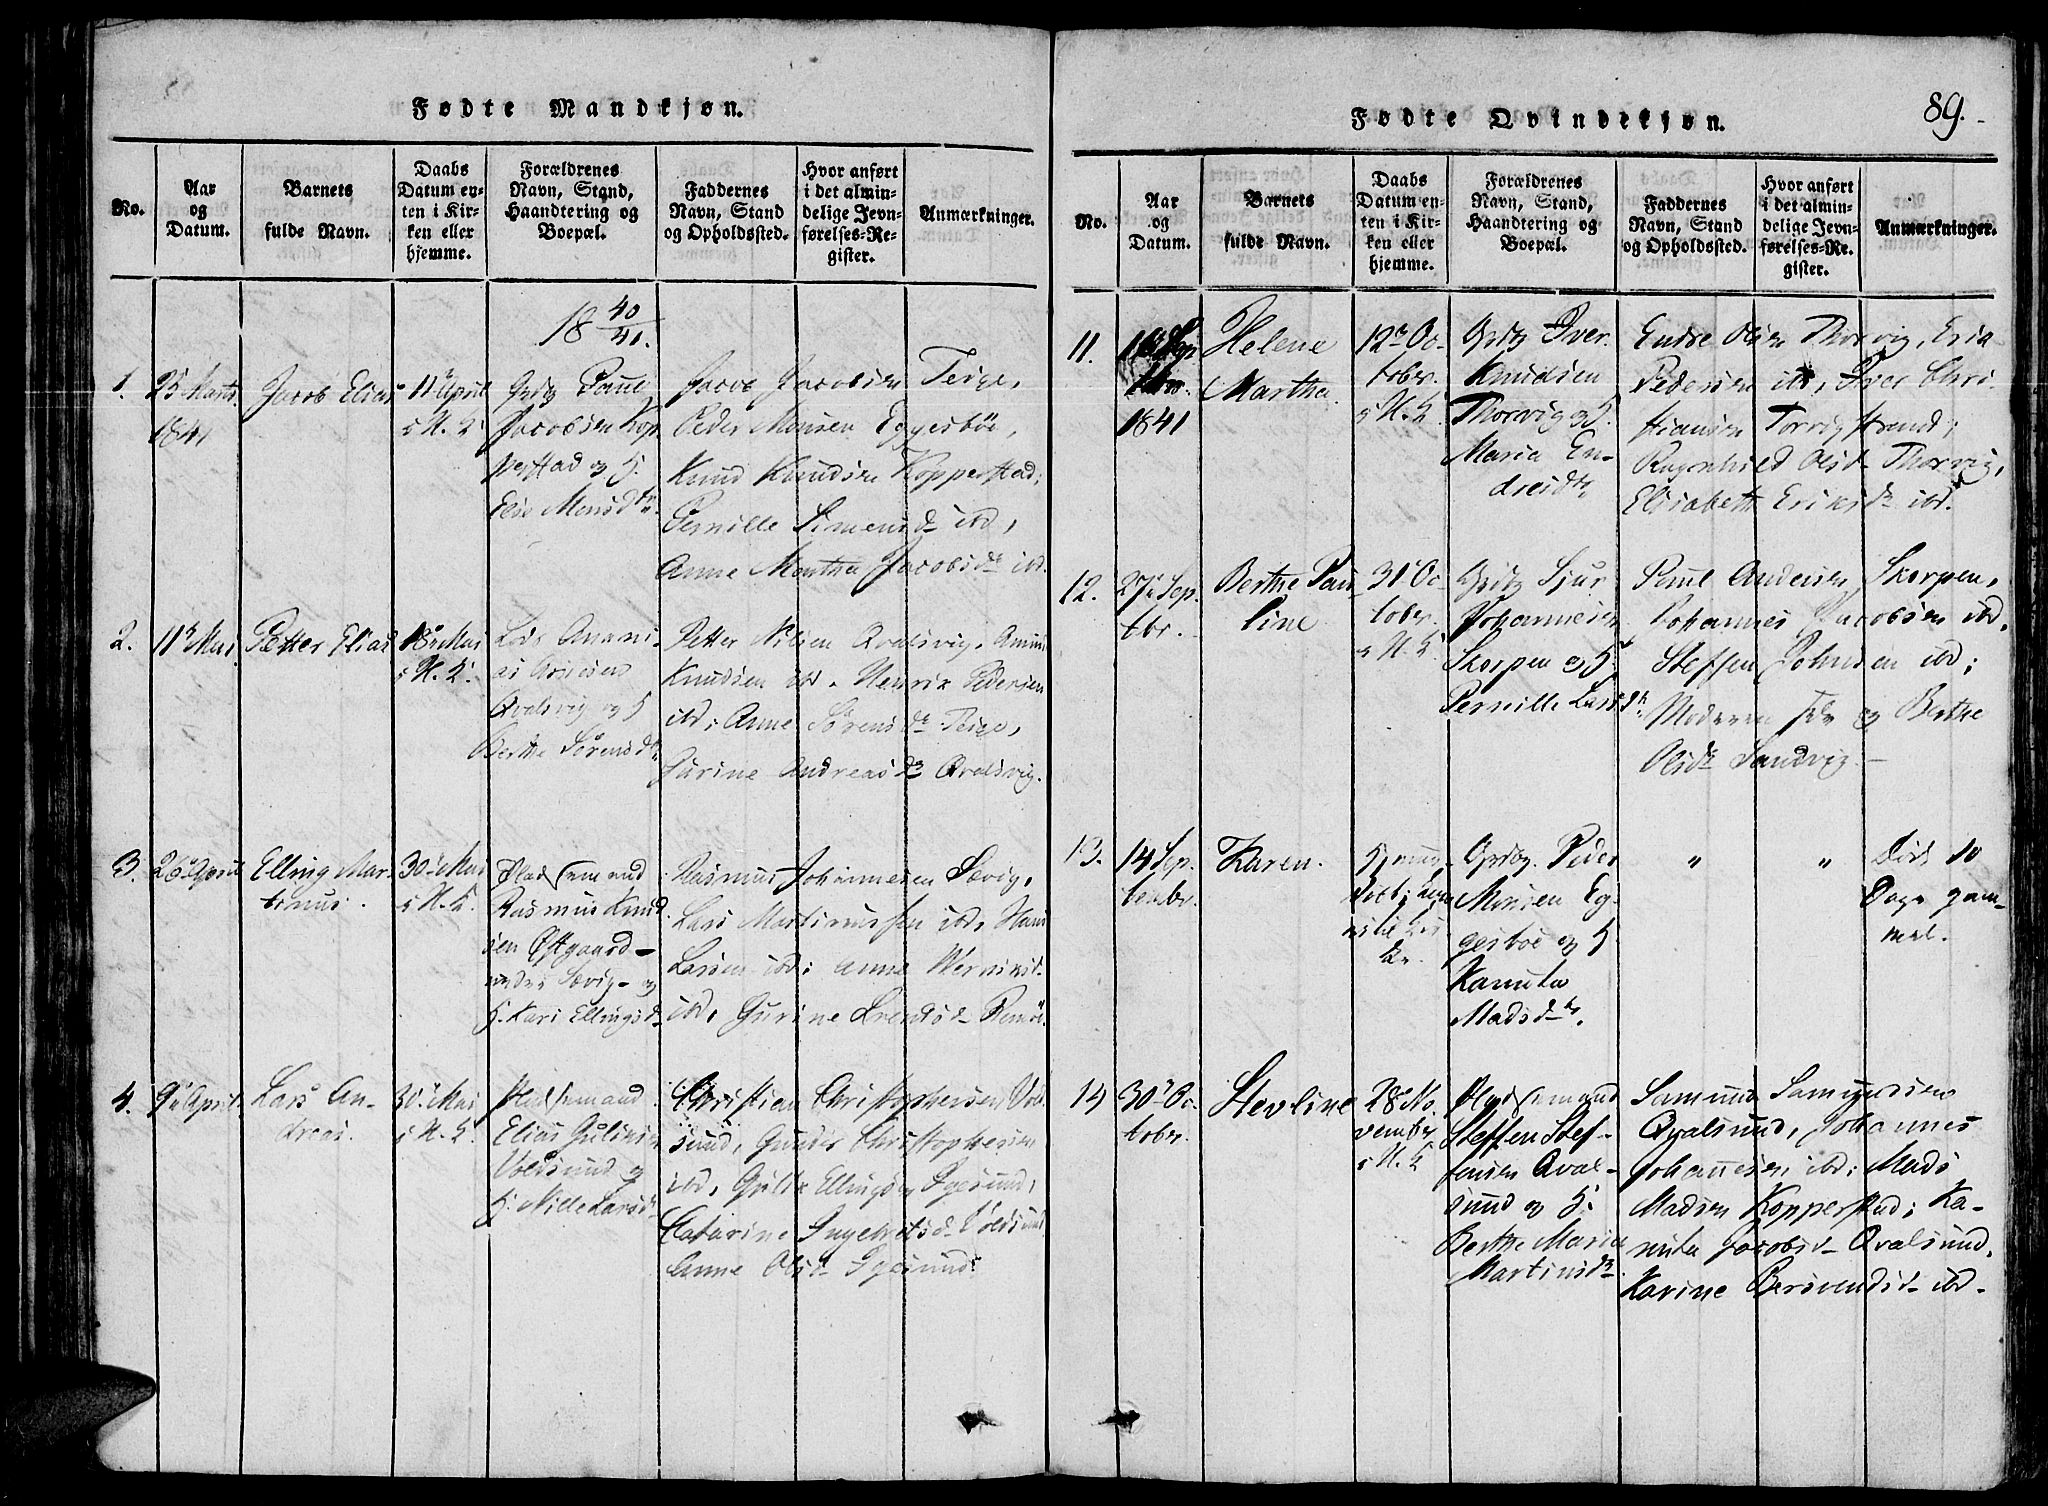 Fødte Mandkjøn.
No.
Aar
og
Datum.
Barnets
fulde Navn.
Daabs
Datum en-
ten i Kir-
ken eller
hjemme.
Forældrenes
Navn, Stand,
Haandtering og
Boepæl.
Faddernes
Navn, Stand
og Opholdssted.
Hvor anført
i det almin-
delige Jevn-
førelses-Re-
gister.
Anmærkninger.
18 40/41.
1.
25 Marts
1841
Jacob Elias
11 April
i H. K.
Grdbr Paul
Jacobsen Kop
perstad og H.
Else Monsdtr
Jacob Jacobsen Teige,
Peder Monsen Eggesbøe,
Knud Knudsen Kopperstad;
Pernille Simensd ibd,
Anne Martha Jacobsdr ibd.
2.
11 Mai
Petter Elias
18 Mai
i H. K.
Anani
as
Qvalsvig og H
Berthe Sørensdtr
Petter Nilsen Qvalsvig, Amund
Knudsen ibd, Henrik Pedersen
ibd; Anne Sørensdr Teige,
Jurine Andreasdr Qvalsvig.
3.
26 April
Elling Mar-
tinus.
30 Mai
i H. K.
Pladsemand
Rasmus Knud
sen Østgaard-
Sævig og
H. Kari Ellingsd
Rasmus Johannesen Sævig,
Lars Martinussen ibd, Hans
Larsen ibd; Anne
ibd, Gurine Remøe.
4.
9 April
Lars An-
dreas.
30 Mai
i H. K.
Pladsemand
Elias Gulliksen
Voldsund og
H. Nille Larsd
Christian Christophersen Vold
sund, Gunder Christophersen
ibd, Gulik Ellingsen Igesund;
Catarine Ingebretsd Voldsund
Anne Olsd Igesund.
89.
Fødte Qvindekjøn.
No.
Aar
og
Datum.
Barnets
fulde Navn.
Daabs
Datum en-
ten i Kir-
ken eller
hjemme.
Forældrenes
Navn, Stand,
Haandtering og
Boepæl.
Faddernes
Navn, Stand
og Opholdssted.
Hvor anført
i det almin-
delige Jevn-
førelses-Re-
gister.
Anmærkninger.
11.
Sep
tbr.
1841
Helene
Martha.
12 Oc-
tober
i H. K.
Grdbr Iver
Knudsen
Thorvig og H.
Maria En-
dresdtr
Endre Olsen Thorvig, Erik
Pedersen ibd, Iver Chri-
stiansen Torvigstrand;
Ragnhild Olsd Thorvig,
Elisabeth Eriksdr ibd.
12.
27 Sep
tbr.
Berthe Pau-
line
31 Oc-
tober
i H. K.
Grdbr Sjur
Johannesen
Skorpen og H.
Pernille Larsdtr
Paul Andersen Skorpen,
Johannes Jacobsen ibd,
Steffen Johnsen ibd;
Moderen og Berthe
Olsdr Sandvig.
13.
14 Sep
tembr.
Karen.
Grdbr. Peder
Monsen Eg-
gesbøe og H
Kanuta
Madsdtr.
"
"
Døde 10
Dage gam-
mel.
14
30 Oc-
tober.
Stevline
28 No-
vember
i H. K.
Pladsemand
Steffen Stef-
fensen Qval-
sund og H.
Berthe Maria
Martinsdr
Samund Samundsen
Qvalsund, Johannes
Johannesen ibd; Mads
Madsen Kopperstad; Ka-
nuta Jacobsd Qvalsund,
Karine Bersvendsd ibd.